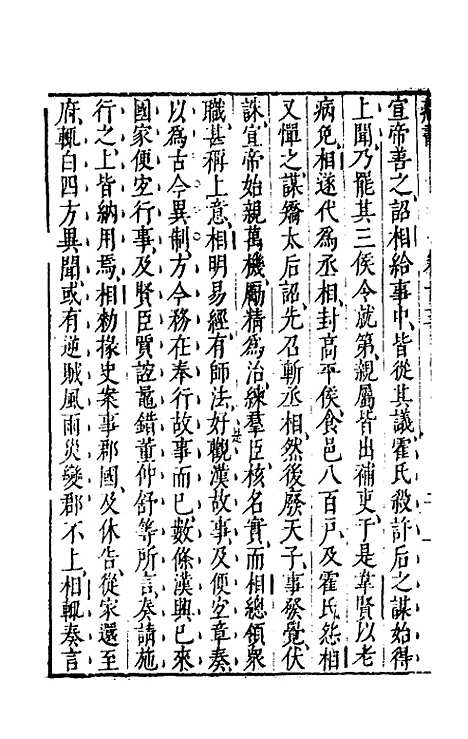 宣帝善之詔相給事中皆從其議霍氏殺許后之謀始得
上聞乃罷其三侯令就第親屬皆出補吏于是韋賢以老
病免相遂代為丞相封高平侯食邑八百戶及霍氏怨相
又憚之謀矯太后詔先召斬丞相然後廢天子事發覺伏
誅宣帝始親萬機勵精為治練羣臣核名實而相總領衆
職甚稱上意相明易經有師法好觀漢故事及便宜章奏
以為古今異制方今務在奉行故事而已數條漢興已來
國家便宜行事及賢臣賈誼鼂錯董仲舒等所言奏請施
行之上皆納用焉相勑掾史案事郡國及休告從家還至
府輒白四方異聞或有逆賊風雨災變郡不上相輒奏言